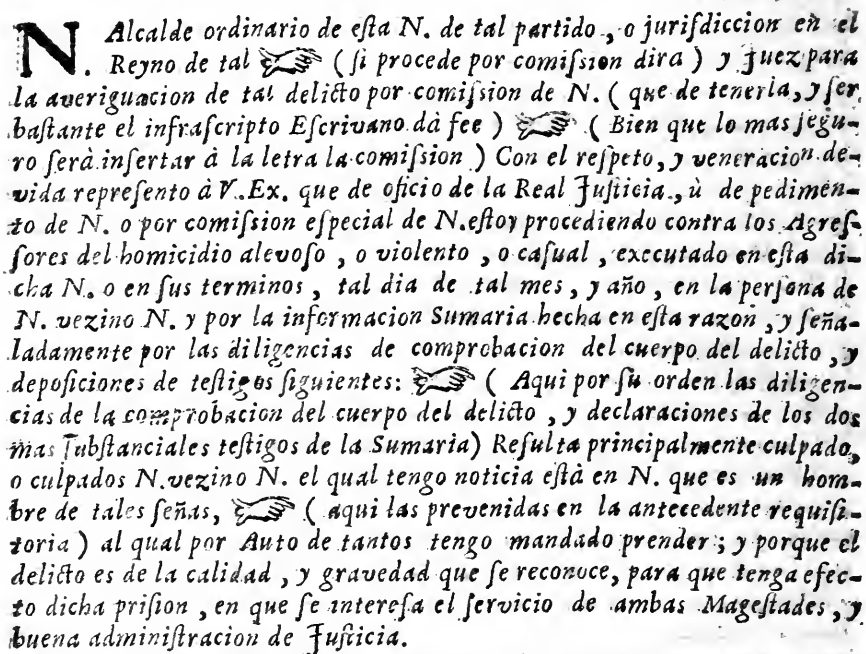 N Alcalde ordinario de eſta N. de tal partido, o juriſdiccion en el
. Reyno de tal ☞ (ſi procede por comiſsion dira) y Juez para
la averiguacion de tal delicto por comiſsion de N. (que de tenerla, y ſer
baſtante el infraſcripto Eſcrivano dà fee) ☞ (Bien que lo mas ſegu-
ro ſerà inſertar à la letra la comiſsion) Con el reſpeto, y veneracion de-
vida repreſento à V.Ex. que de oficio de la Real Juſticia, ù de pedimen-
to de N. o por comiſsion eſpecial de N. eſtoy procediendo contra los Agreſ-
ſores del homicidio alevoſo, o violento, o caſual, executado en eſta di-
cha N. o en ſus terminos, tal dia de tal mes, y año, en la perſona de
N. vezino N. y por la informacion Sumaria hecha en eſta razon, y ſeña-
ladamente por las diligencias de comprobacion del cuerpo del delicto, y
depoſiciones de teſtigos ſiguientes: ☞ (Aqui por ſu orden las diligen-
cias de la comprobacion del cuerpo del delicto, y declaraciones de los dos
mas ſubſtanciales teſtigos de la Sumaria) Reſulta principalmente culpado,
o culpados N. vezino N. el qual tengo noticia eſtà en N. que es un hom-
bre de tales ſeñas, ☞ (aqui las prevenidas en la antecedente requiſi-
toria) al qual por Auto de tantos tengo mandado prender; y porque el
delicto es de la calidad, y gravedad que ſe reconoce, para que tenga efec-
to dicha priſion, en que ſe intereſa el ſervicio de ambas Mageſtades, y
buena adminiſtracion de Juſticia.